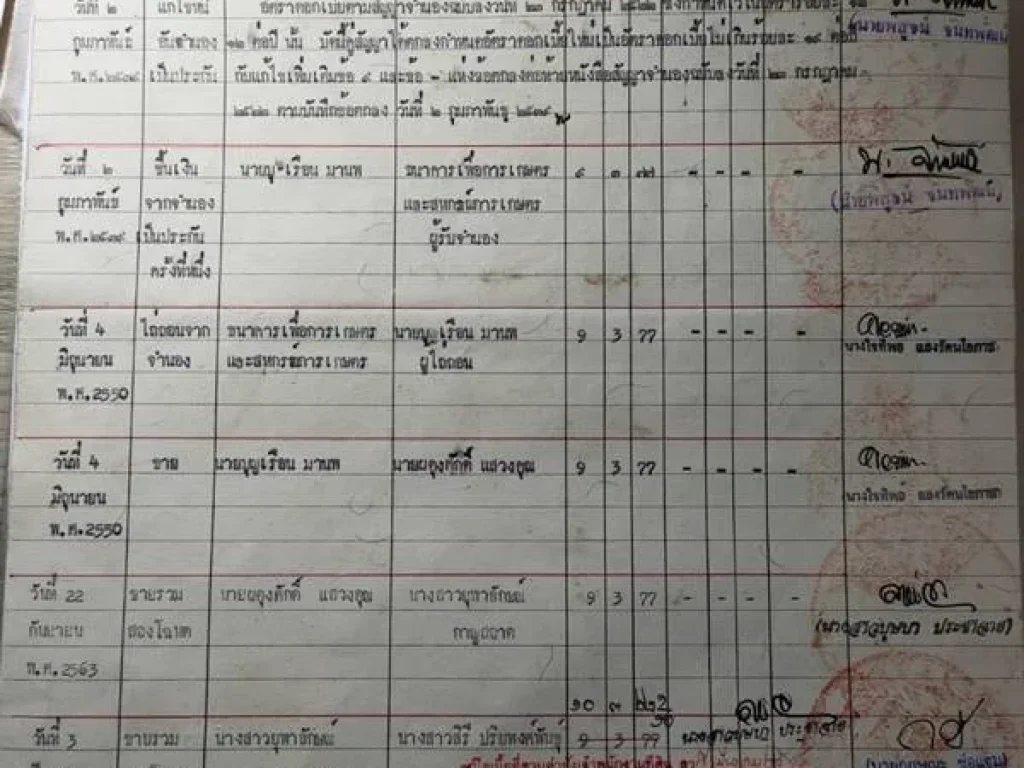 วันที่ ๒ แก้ไขหนี้ อัตราดอกเบี้ยตามสัญญาจำนองฉบับลงวันที่ ๒๓ กรกฎาคม
กุมภาพันธ์ อันจำนอง ๑๒ ต่อปี นั้น บัดนี้คู่สัญญาได้ตกลงกำหนดอัตราดอกเบี้ยใหม่เป็นอัตราดอกเบี้ยไม่เกินร้อยละ ๑๙ ต่อปี
เป็นประกัน กับแก้ไขเพิ่มเติมข้อ ๕ และข้อ แห่งข้อตกลงต่อท้ายหนังสือสัญญาจำนองฉบับลงวันที่ ๒๓ กรกฎาคม
๒๕๒๒ ตามบันทึกข้อตกลง วันที่ ๒ กุมภาพันธุ์
วันที่ ๒ ขึ้นเงิน นายบุญเรือน มานพ ธนาคารเพื่อการเกษตร ๙ ๓ ๗๗ - - - -
กุมภาพันธ์ จากจำนอง และสหกรณ์การเกษตร
เป็นประกัน ผู้รับจำนอง
ครั้งที่หนึ่ง
วันที่ 4 ไถ่ถอนจาก ธนาคารเพื่อการเกษตร นายบุญเรือน มานพ 9 3 77 - - - -
มิถุนายน จำนอง และสหกรณ์การเกษตร ผู้ไถ่ถอน
พ.ศ.2550
วันที่ 4 ขาย นายบุญเรือน มานพ นายผดุงศักดิ์ แสวงคุณ 9 3 77 - - - -
มิถุนายน
พ.ศ.2550
วันที่ 22 ขายรวม นายผดุงศักดิ์ แสวงคุณ นางสาวยุพาลักษณ์ 9 3 77 - - - -
กันยายน สองโฉนด กาญ
พ.ศ.2563 (นางสาวบุษบา)
๑๐ ๓
วันที่ 3 ขายรวม นางสาวยุพาลักษณ์ นางสาวสิรี 9 3 77 นางสาวบุษบา